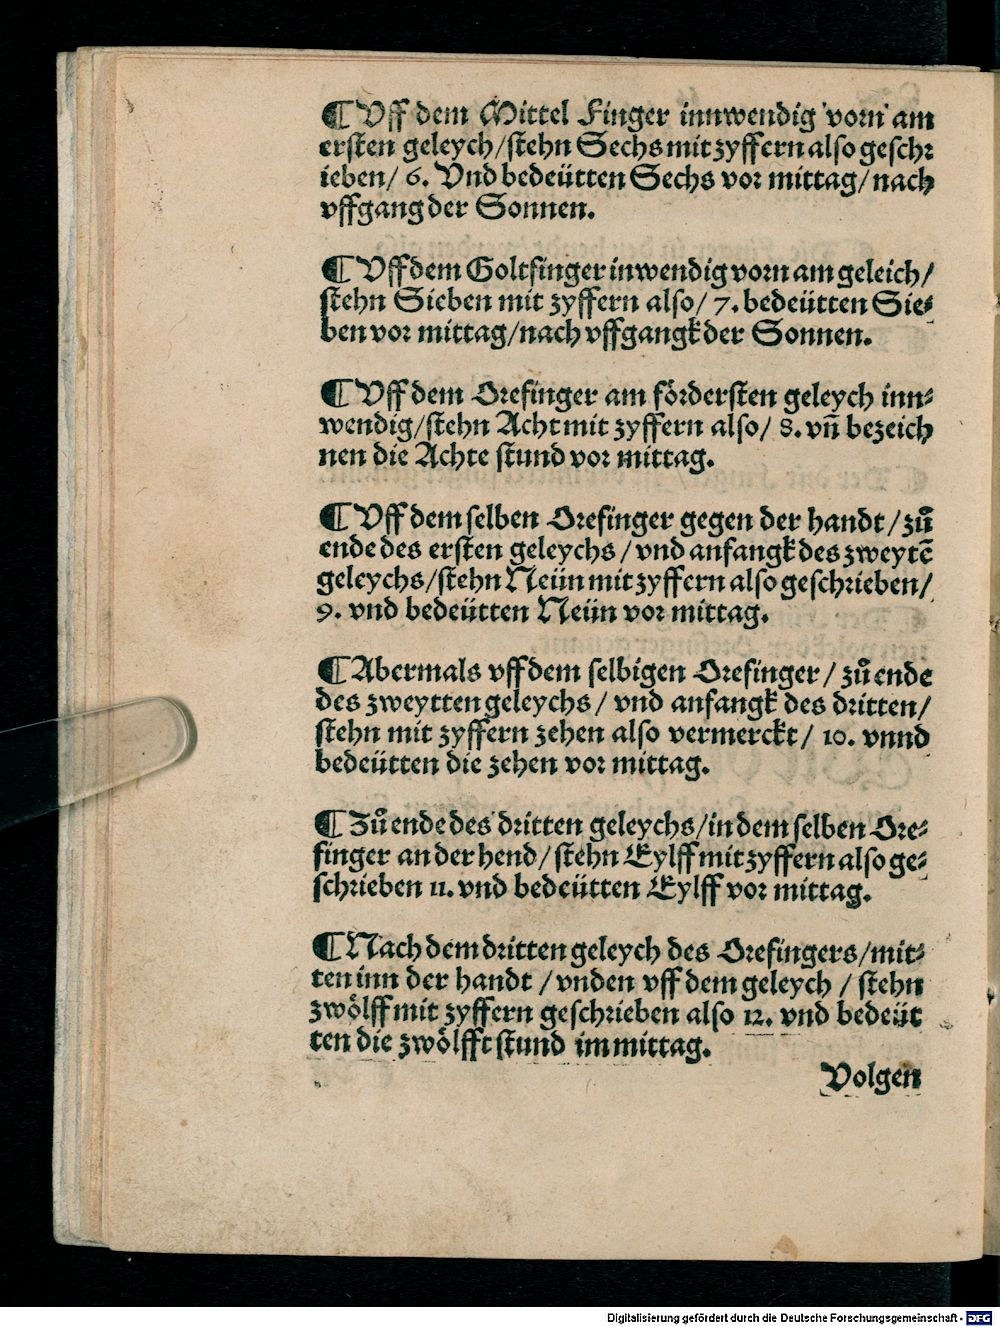 ¶ Vff dem Mittel Finger innwendig vorn am
ersten geleych/stehn Sechs mit zyffern also geschr
ieben/ 6. Vnd bedeütten Sechs vor mittag/nach
vffgang der Sonnen.
¶ Vff dem Goltfinger inwendig vorn am geleich/
stehn Sieben mit zyffern also/ 7. bedeütten Sie⸗
ben vor mittag/nach vffgangk der Sonnen.
¶ Vff dem Orefinger am fördersten geleych inn⸗
wendig/stehn Acht mit zyffern also/ 8. vn̄ bezeich
nen die Achte stund vor mittag.
¶ Vff dem selben Orefinger gegen der handt/zuͦ
ende des ersten geleychs/vnd anfangk des zweytē
geleychs/stehn Neün mit zyffern also geschrieben/
9. vnd bedeütten Neün vor mittag.
¶ Abermals vff dem selbigen Orefinger/ zuͦ ende
des zweytten geleychs/ vnd anfangk des dritten/
stehn mit zyffern zehen also vermerckt/ 10. vnnd
bedeütten die zehen vor mittag.
¶ Zuͦ ende des dritten geleychs/in dem selben Ore⸗
finger an der hend/ stehn Eylff mit zyffern also ge⸗
schrieben 11. vnd bedeütten Eylff vor mittag.
¶ Nach dem dritten geleych des Orefingers/mit⸗
ten inn der handt /vnden vff dem geleych / stehn
zwölff mit zyffern geschrieben also 12. vnd bedeüt
ten die zwölfft stund im mittag.
Volgen
Digitalisierung gefördert durch die Deutsche Forschungsgemeinschaft - DFG